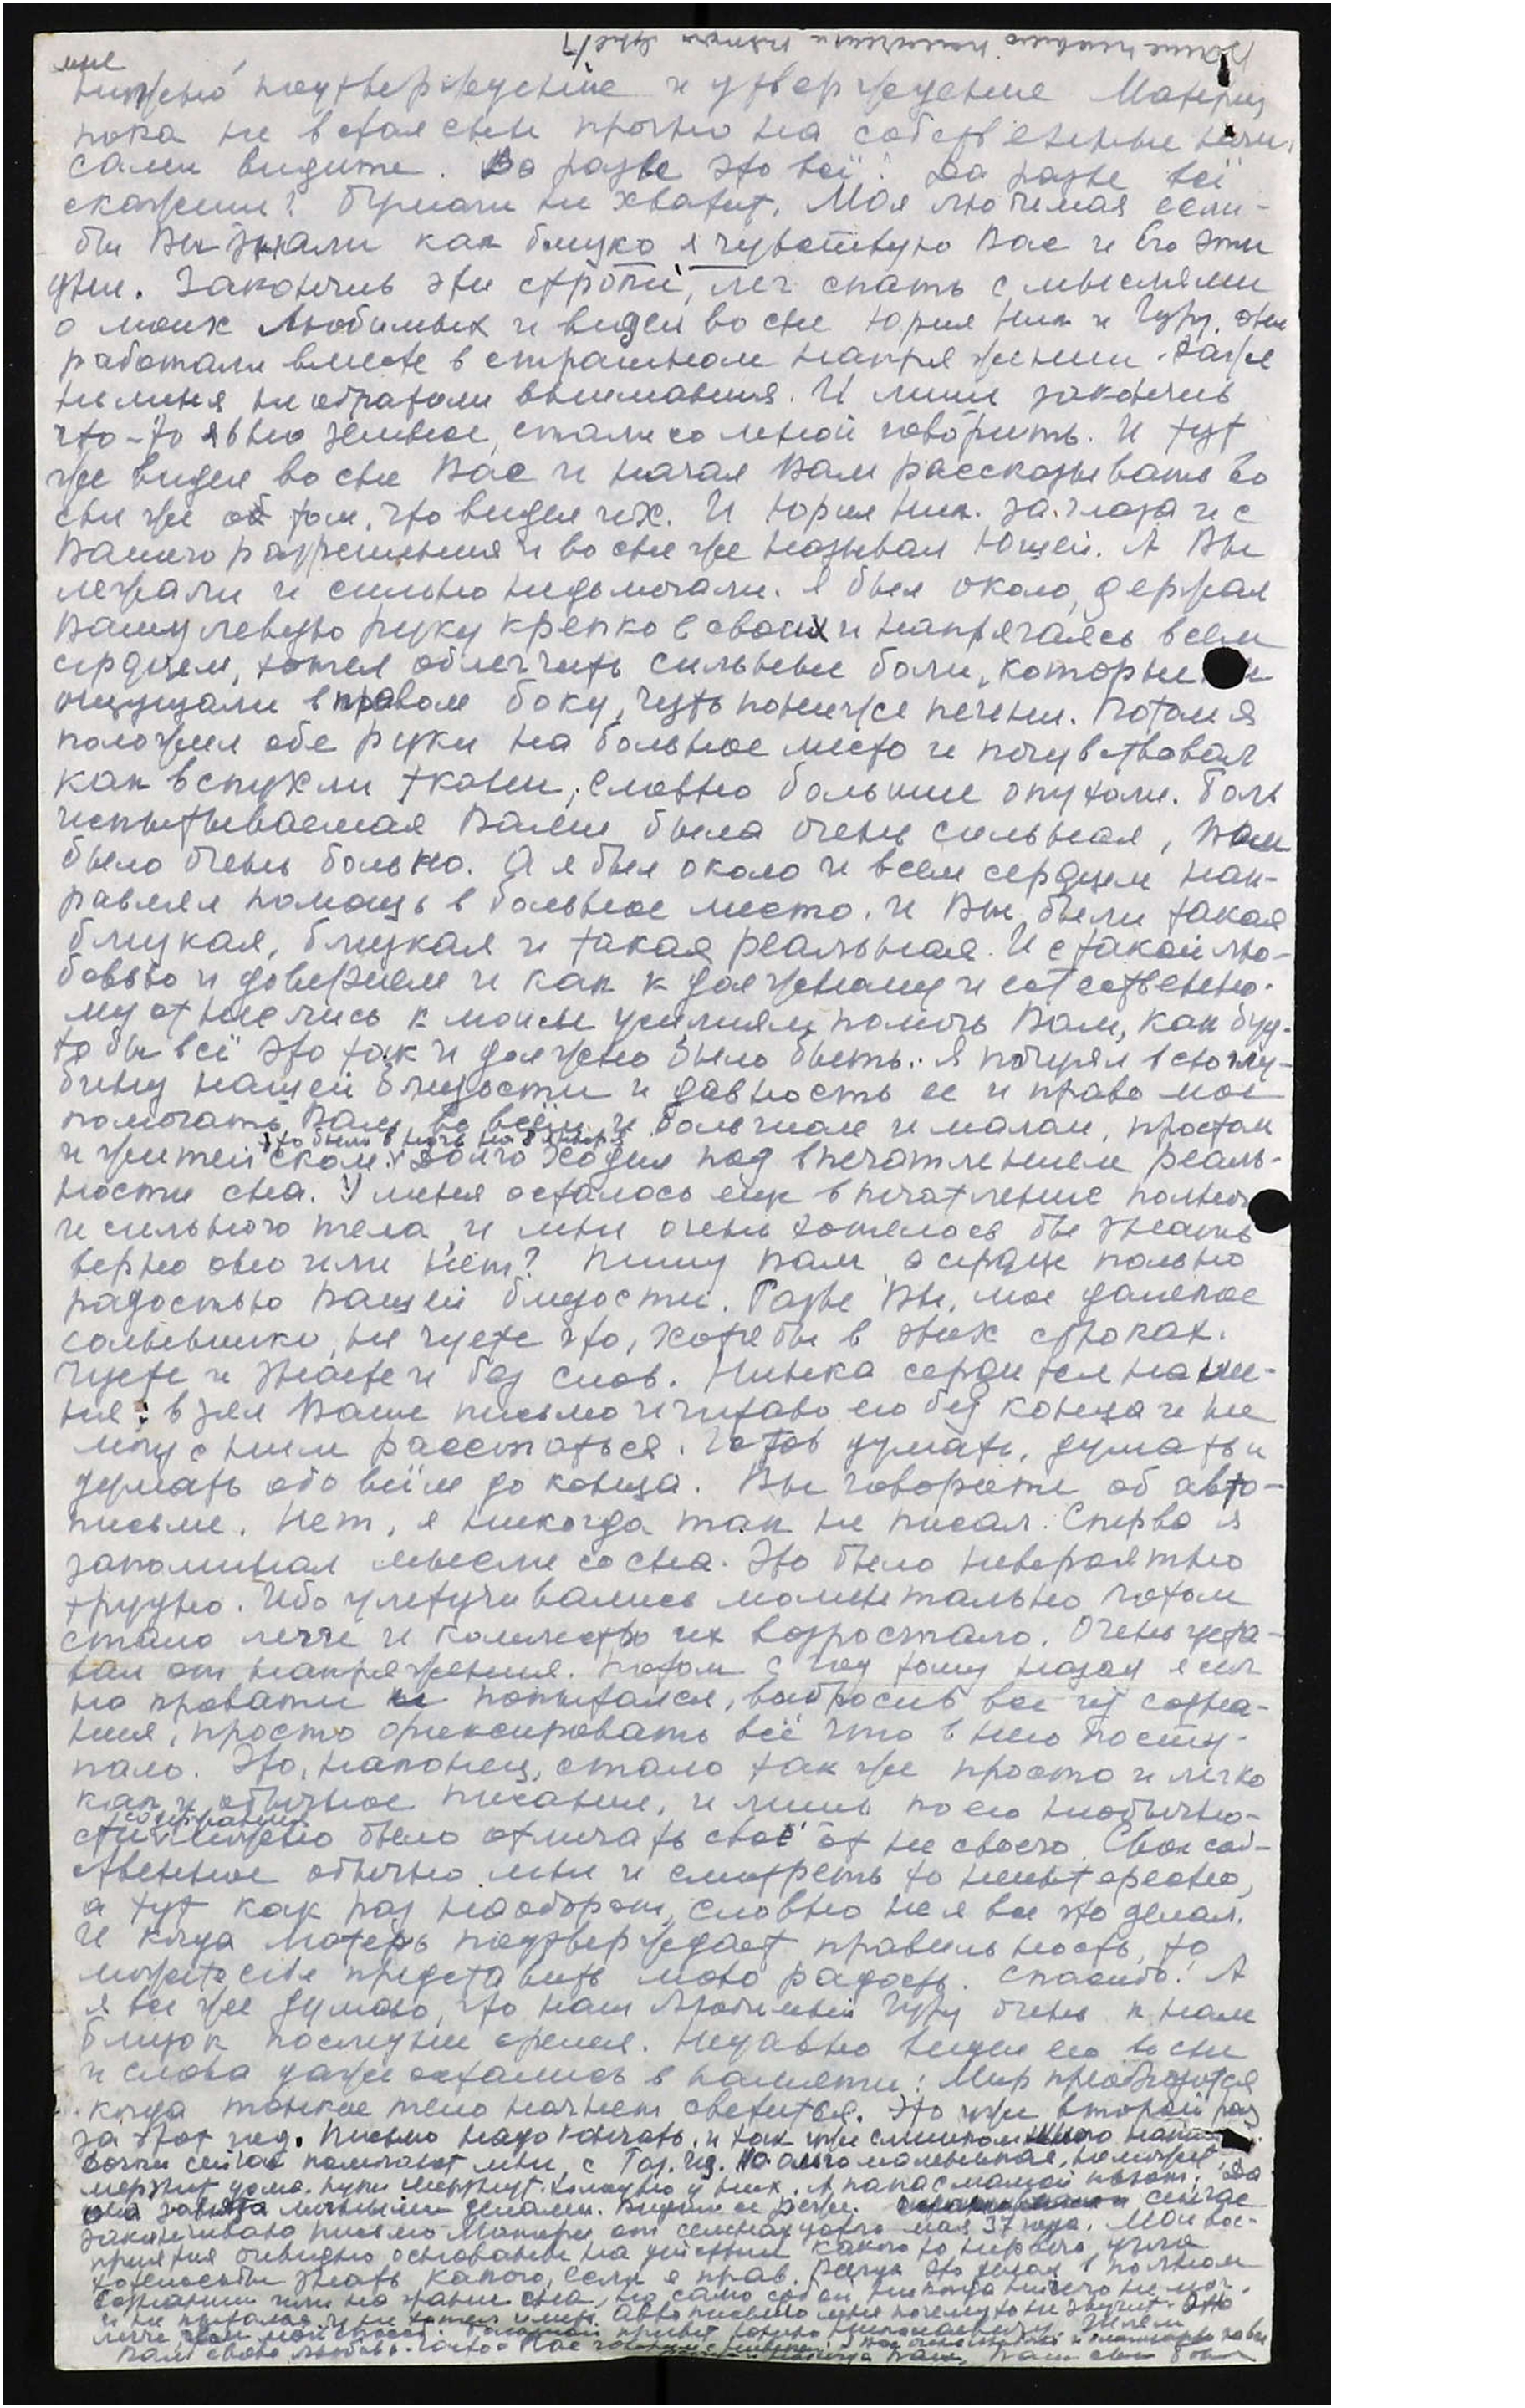 Ваше письмо
мне
нужно подтверждение и утверждение Матери,
пока не встал сын прочно на собственные ноги,
сами видите. Да разве это всё? Да разве всё
скажешь? Бумаги не хватит. Моя любимая если-
бы Вы знали как близко я чувствую Вас и Его эти
дни. Закончив эти строки, лег спать с мыслями
о моих Любимых и видел во сне Юрия Ник и Гуру. Они
работали вместе в страшном напряжении. Даже
на меня не обратили внимания. И лишь закончив
что-то явно земное, стали со мной говорить. И тут
же видел во сне Вас и начал Вам рассказывать во
сне же об том, что видел их. И Юрия Ник. за глаза и с
Вашего разрешения и во сне же называл Юшей. А Вы
лежали и сильно недомогали. Я был около, держал
Вашу левую руку крепко в своих и напрягаясь всем
сердцем, хотел облегчить сильные боли, которые
ощущали в правом боку, чуть пониже печени. Потом я
положил обе руки на больное место и почувствовал
как вспухли ткани, словно большие опухоли. Боль
испытываемая Вами была очень сильная, Вам
было очень больно. А я был около и всем сердцем нап-
равлял помощь в больное место. И Вы были такая
близкая, близкая и такая реальная. И с такой лю-
бовью и доверием и как к должному и естественно-
му отнеслись к моим усилиям помочь Вам, как буд-
то бы всё это так и должно было быть. Я почуял всю глу-
бину нашей близости и давность ее и право мое
помогать Вам во всём и большом и малом, простом
это было в ночь на 8 января
и житейском. Долго ходил под впечатлением реаль-
ности сна. У меня осталось еще впечатление полного
и сильного тела, и мне очень хотелось бы знать
верно оно или нет? Пишу Вам, а сердце полно
радостью Вашей близости. Разве Вы, мое далекое
солнышко, не чуете это, хотя бы в этих строках.
Чуете и знаете и без слов. Нинка сердится на ме-
ня: взял Ваше письмо и читаю его без конца и не
могу с ним расстаться. Готов думать, думать и
думать обо всём до конца. Вы говорите об авто-
письме. Нет, я никогда так не писал. Сперва я
запоминал мысли со сна. Это было невероятно
трудно. Ибо улетучивались моментально. Потом
стало легче и количество их возростало. Очень уста-
вал от напряжения. Потом с год тому назад я сел
на кровати и попытался, выбросив все из созна-
ния, просто фиксировать всё что в него посту-
пало. Это, наконец, стало так же просто и легко
как и обычное писание, и лишь по его необычно-
содержания
сти можно было отличать своё от не своего. Свое соб-
ственное обычно мне и смотреть то неинтересно,
а тут как раз наоборот, словно не я все это делал.
И когда Матерь подтверждает правильность, то
можете себе представить мою радость. Спасибо! А
я все же думаю, что наш Любимый Гуру очень к нам
близок последнее время. Недавно видел его во сне
и слова даже остались в памяти: Мир преобразится
когда тонкое тело начнет светиться. Это уже второй раз
за этот год. Письмо надо кончать, и так уже слишком много
сейчас помогают мне, с
мерзнет дома. Холодно у них. А папа с мамой
она занята личными делами. Видим ее реже. сейчас
заканчиваю письмо Матери от семнадцатого мая 37 года. Мои вос-
приятия очевидно основаны на действии какого то нервного узла
хотелось бы знать какого, если я прав. Всегда это делал в полном
сознании или на грани сна, но само собой никогда ничего не
и не пытался и не хотел иметь. Автописьмо мне почему то не звучит.
привет
Вам свою любовь.